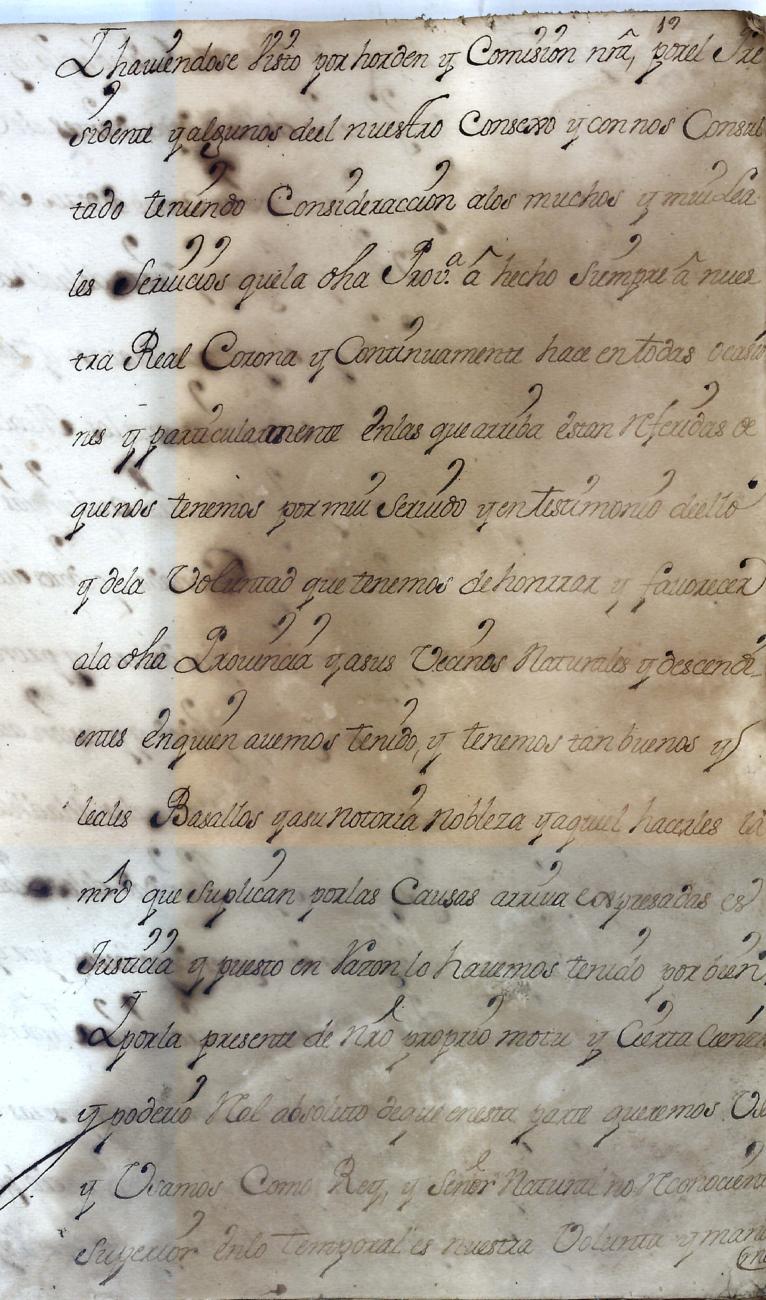 12
Y haviendose Visto por horden y Comision nrã, porel Pre
sidente y algunos deel nuestro Consexo y con nos Consul
tado teniendo Consideraccion alos muchos y mui Lea
les Servicios quela dha Prov.ª â hecho Siempre â nues
tra Real Corona y Continuamente hace en todas ocasio
nes y particularmente ênlas que arriba êstan Rferidas de
que nos tenemos por mui Servido y en testimonio deello
y dela Voluntad que tenemos de honrrar y favorecer
ala dha Provincia y asus Vecinos Naturales y descendi
entes ênquien avemos tenido, y tenemos tan buenos y
leales Basallos y asu notoria nobleza y aquel hacerles la
mrd que Suplican porlas Causas arriva expresadas es
Justicia y puesto en Razon lo havemos tenido por bien,
Y porla presente de Nrô proprio motu y Cierta Cienci
y poderio Rl absoluto deque enesta parte queremos Us
y Usamos Como Rey, y Señor Natural no Rconociend
Superior ênlo temporal es nuestra Volunta y man